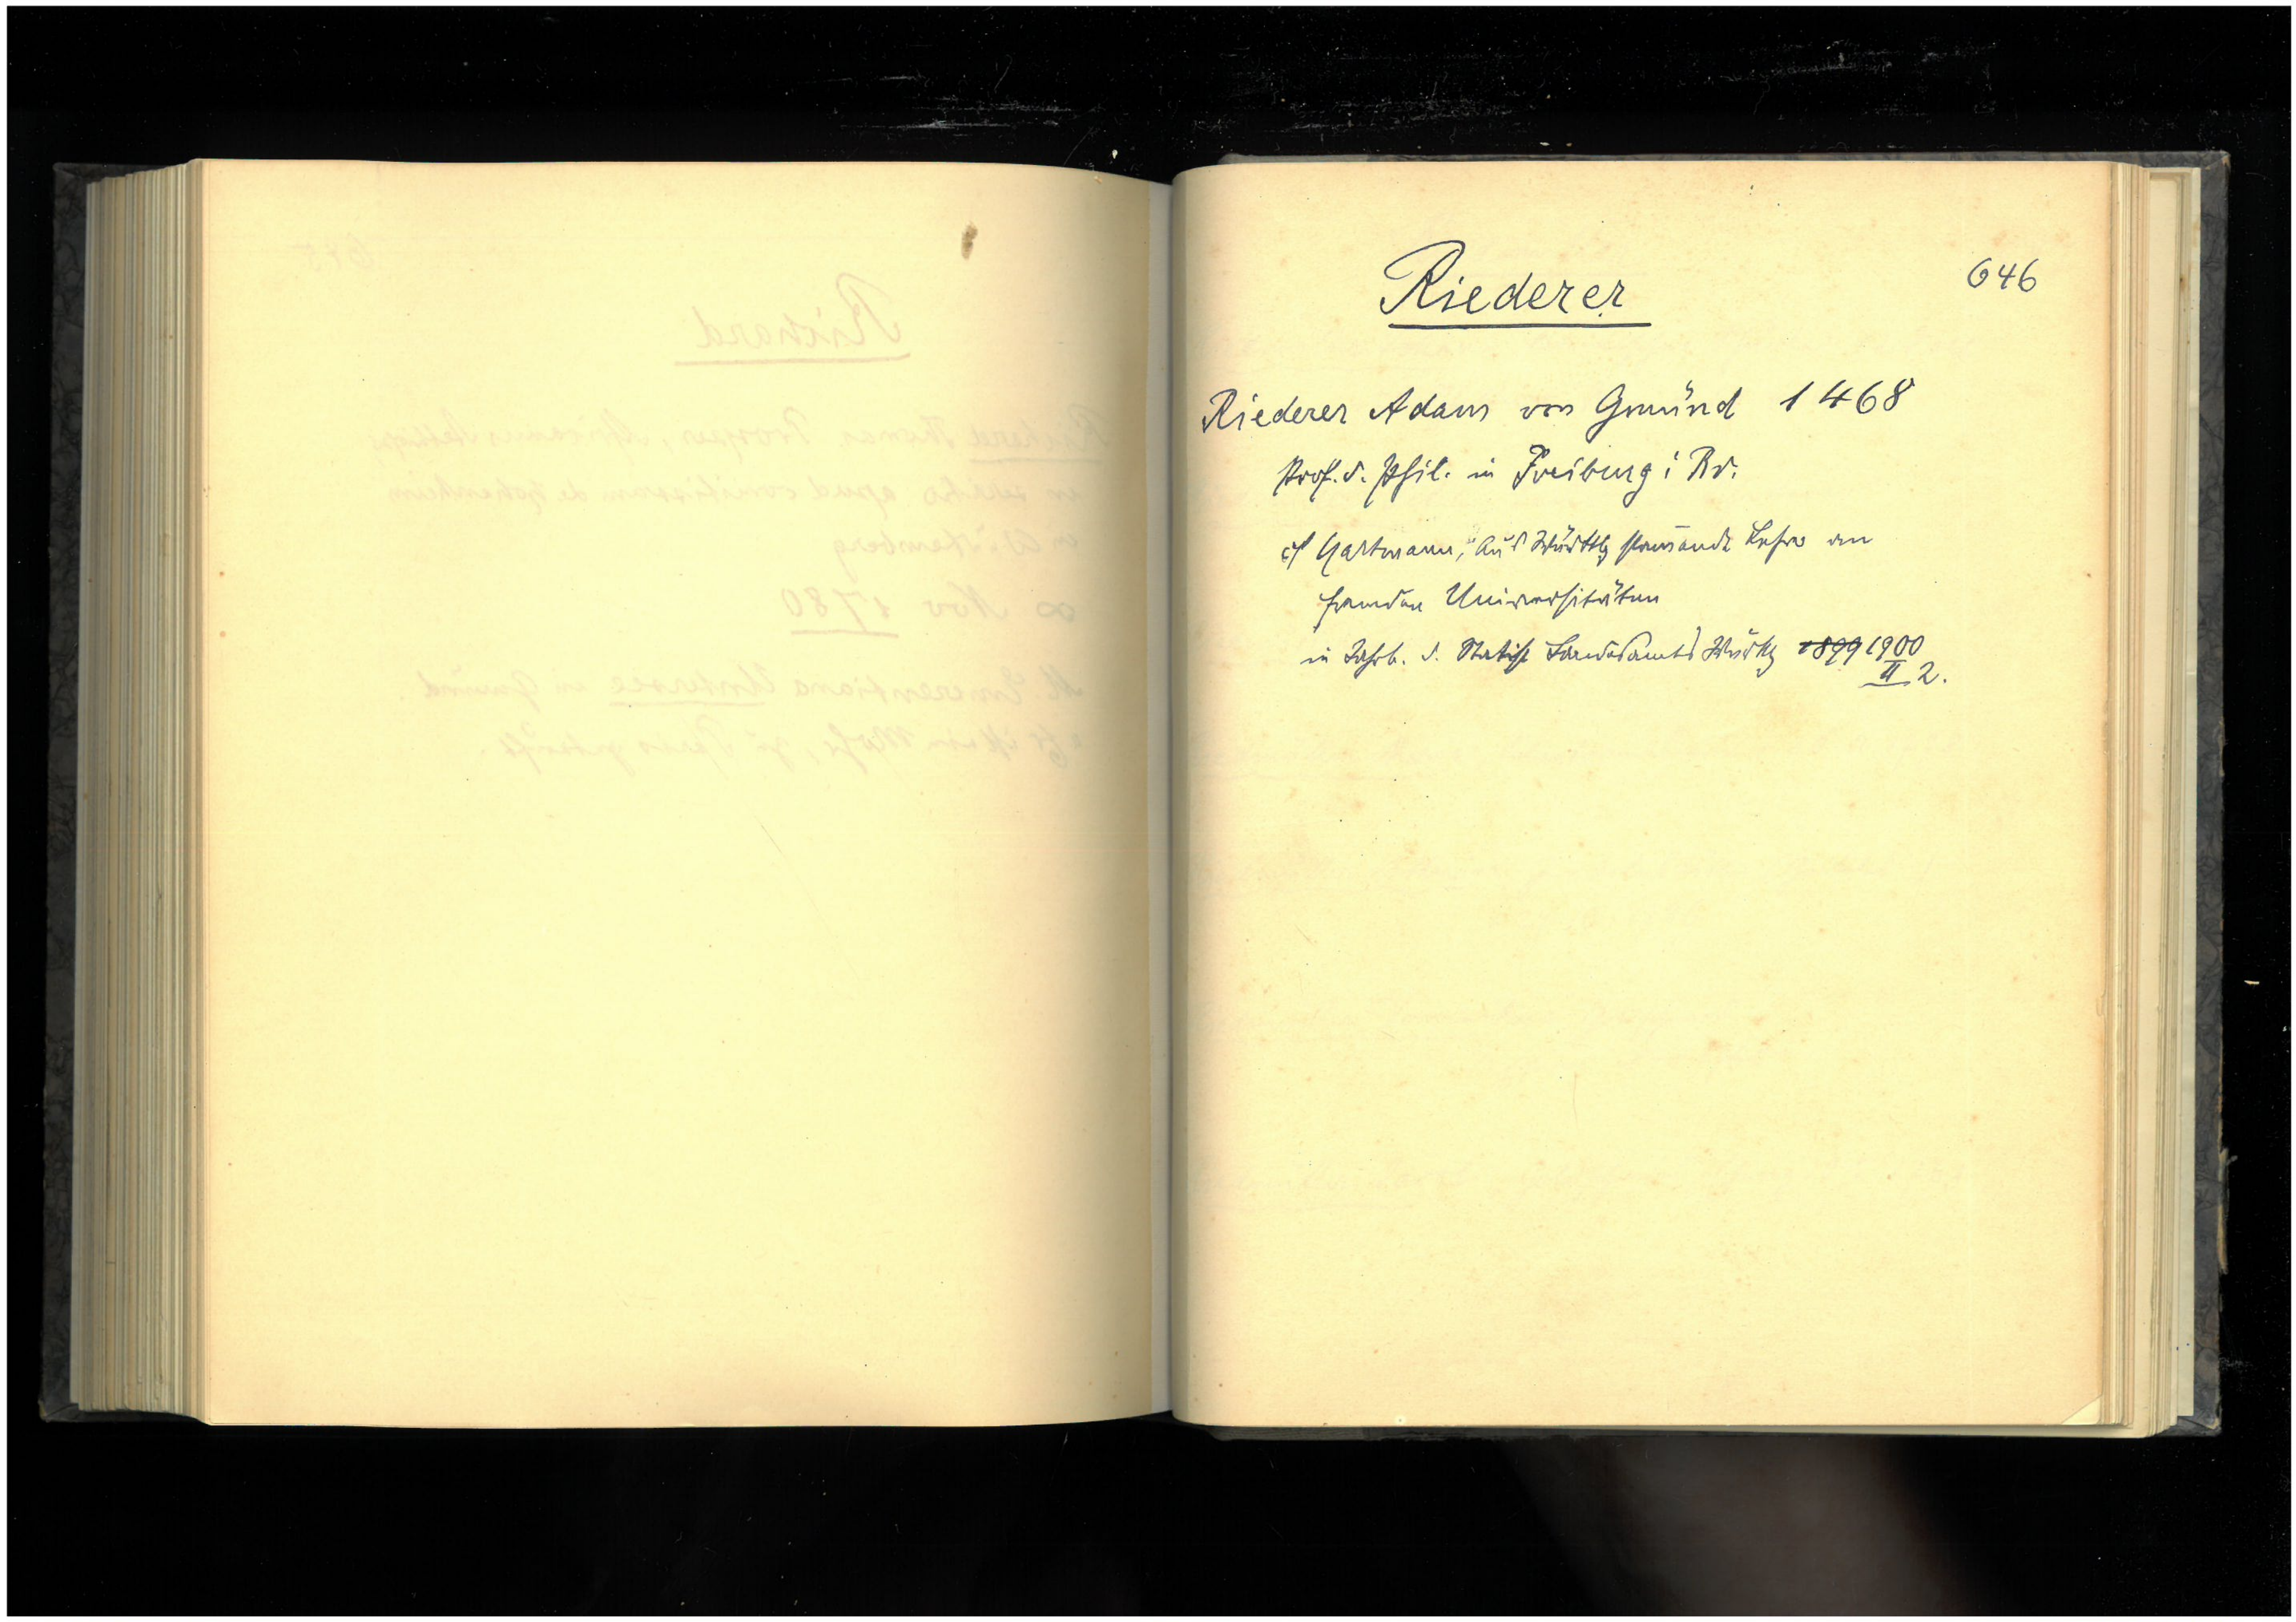 646
Riederer
Riederer Adam von Gmünd 1468
Prof. d. Phil. in Freiburg i Br.
cf Hartmann, "Aus Württbg stamende Lehrer an
fremden Universitäten
in Jahrb. d. Statist Landesamts Württbg 1899 1900
II 2.